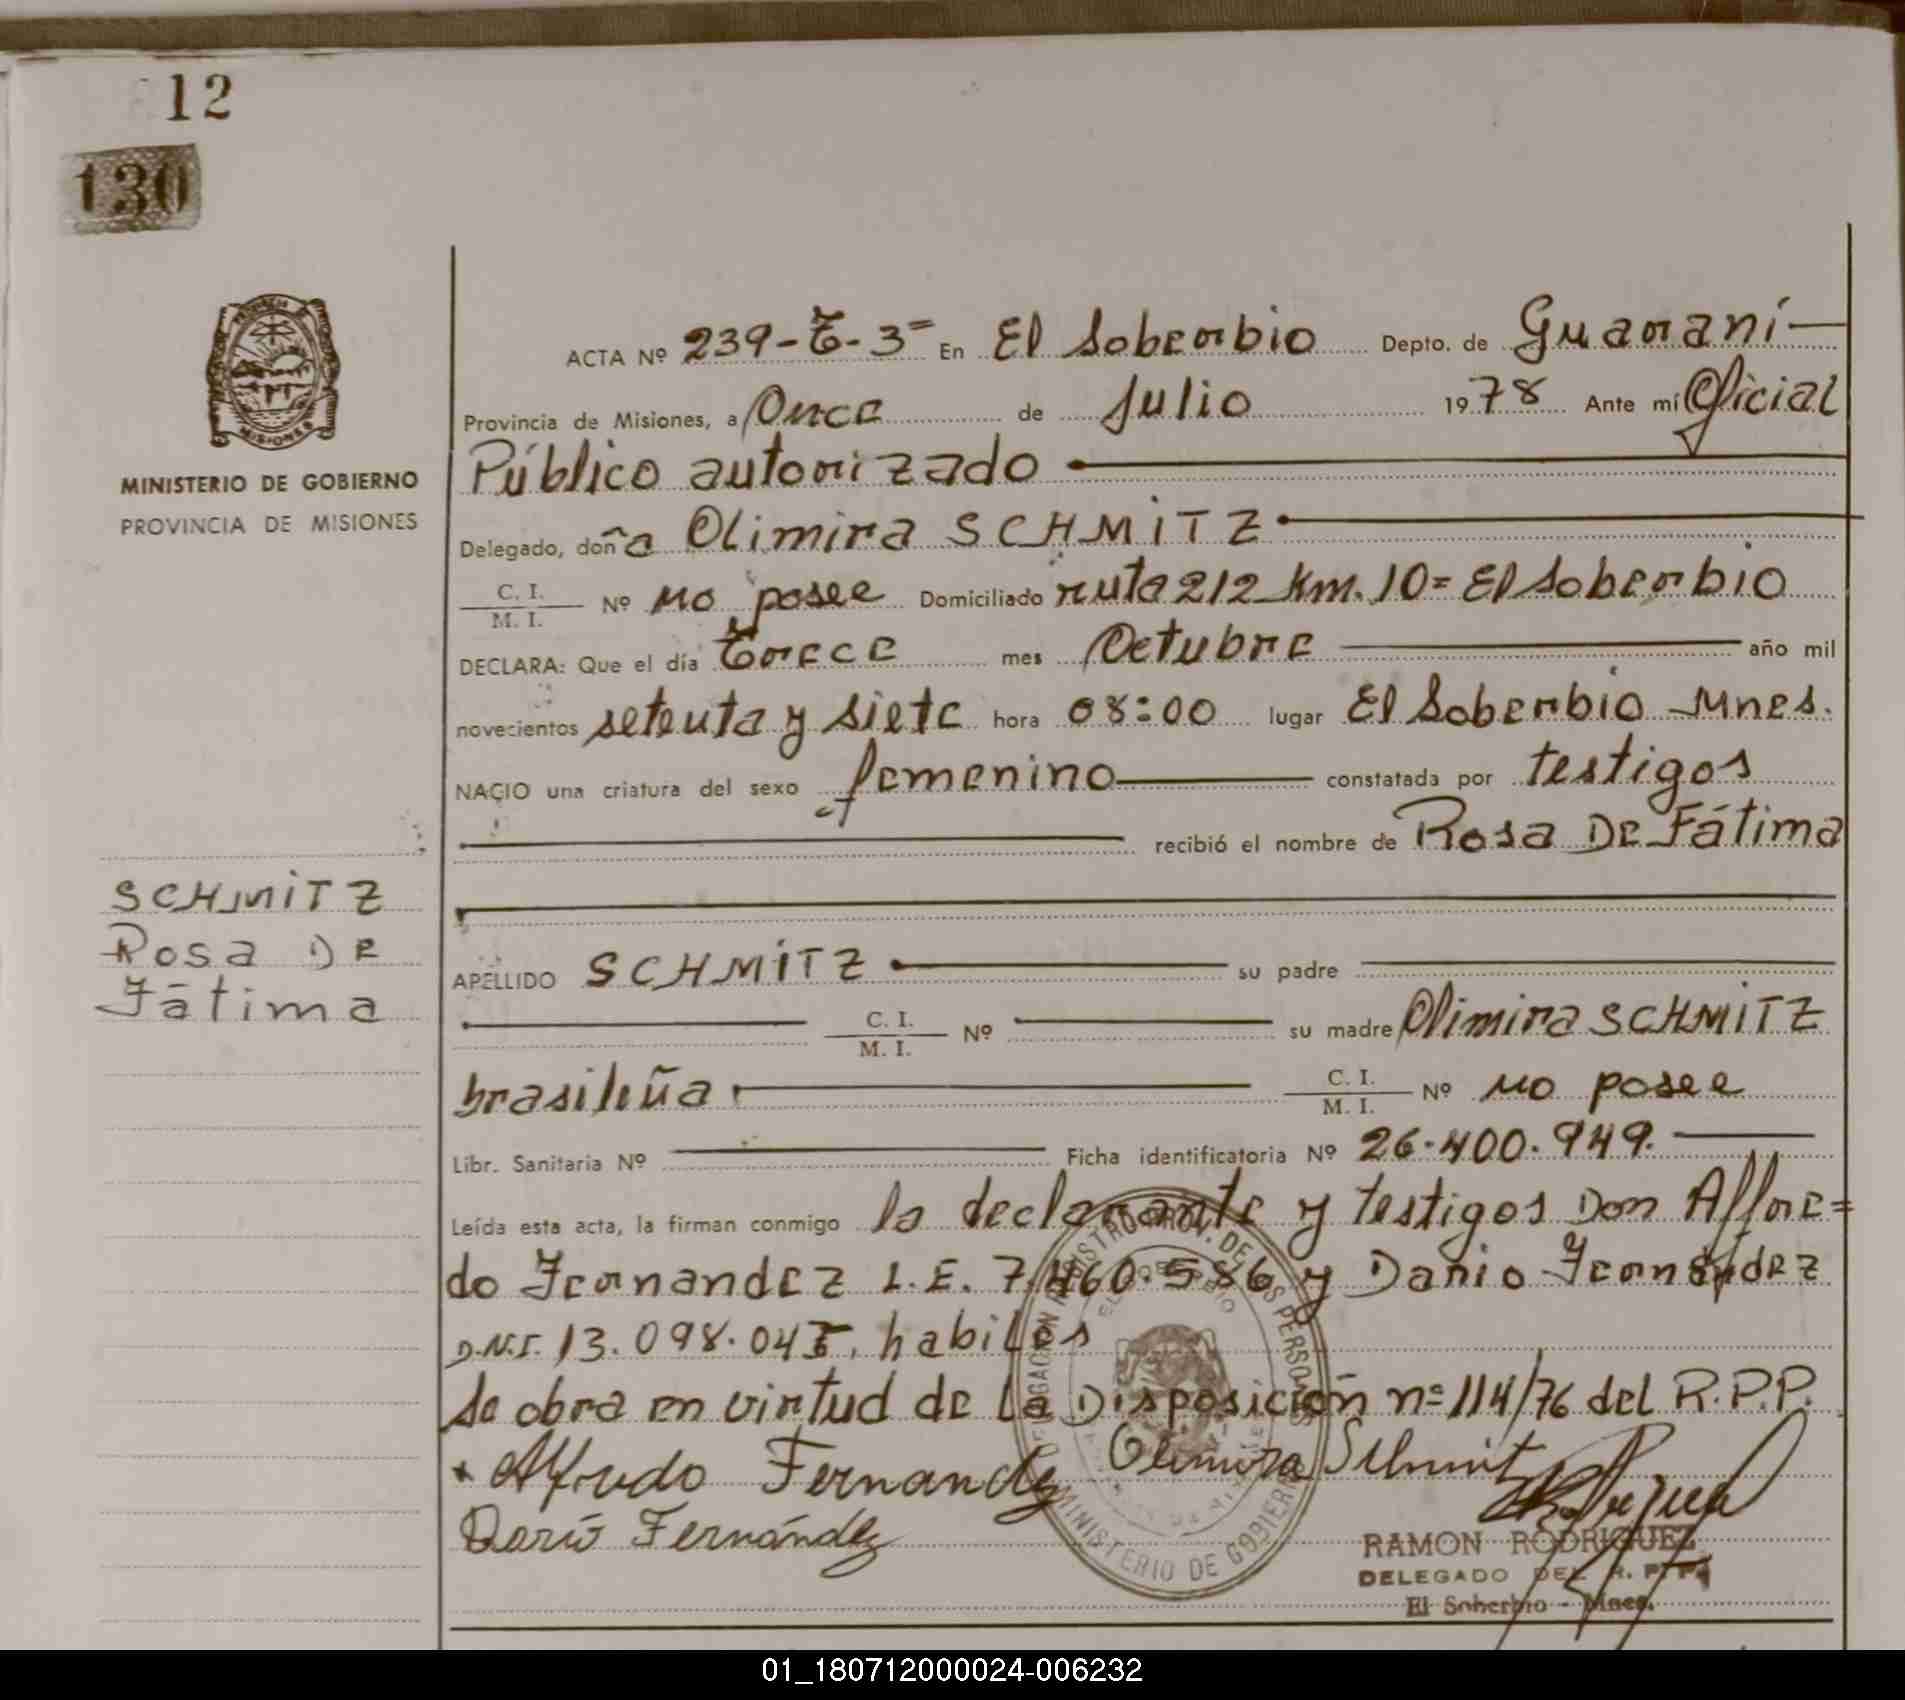 12
130
MISIONES
MINISTERIO DE GOBIERNO
PROVINCIA DE MISIONES
ACTA Nº 239-T-3= En El Soberbio Depto. de Guaraní
Provincia de Misiones, a Once de Julio 1978 Ante mí Oficial
Público autorizado
Delegado, doña Olimira SCHMITZ
C. I. / M. I. Nº no posee Domiciliado ruta 212 Km. 10= El Soberbio
DECLARA: Que el día Trece mes Octubre año mil
novecientos setenta y siete hora 08:00 lugar El Soberbio Mnes.
NACIO una criatura del sexo femenino constatada por testigos
recibió el nombre de Rosa DE Fátima
SCHMITZ
Rosa DE
Fátima
APELLIDO SCHMITZ su padre
C. I. / M. I. Nº su madre Olimira SCHMITZ
brasileña C. I. / M. I. Nº no posee
Libr. Sanitaria Nº Ficha identificatoria Nº 26.400.949.
Leída esta acta, la firman conmigo la declarante y testigos Don Alfre=
do Fernandez L.E. 7.460.586 y Dario Fernández
D.N.I. 13.098.04, habiles
Se obra en virtud de la Disposición nº 114/76 del R.P.P.
Alfredo Fernandez Olimira Schmitz
Darío Fernández
MINISTERIO DE GOBIERNO
RAMON RODRIGUEZ
DELEGADO DEL R. P. P.
El Soberbio - Mnes.
01_180712000024-006232